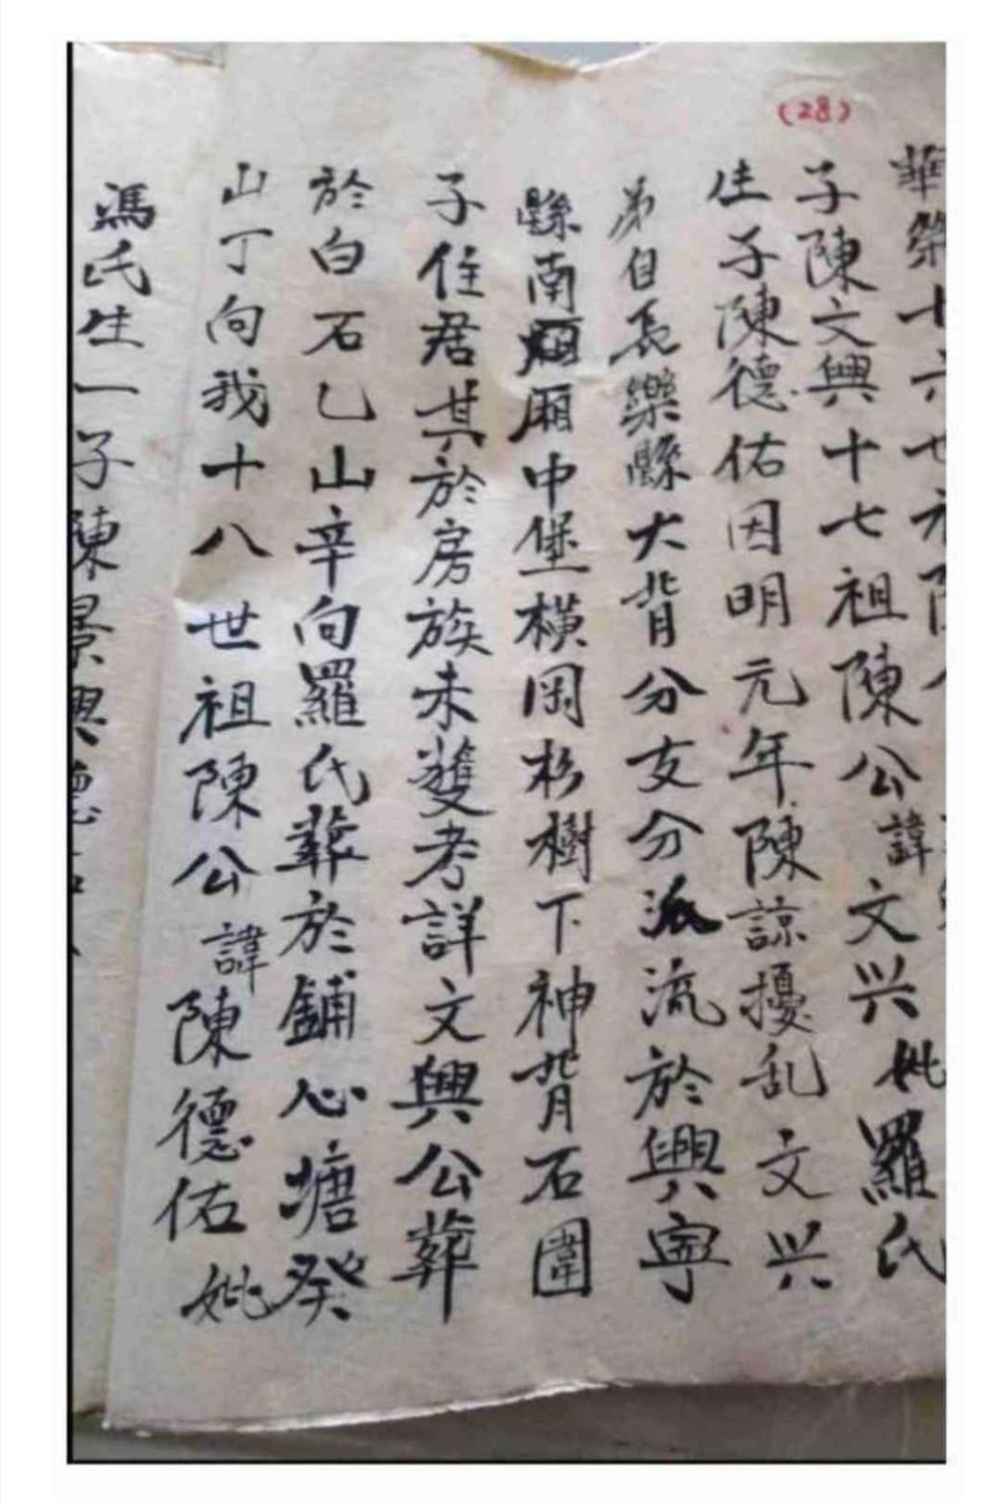 (28)
華榮十六
子陳文興十七祖陳公諱文兴妣羅氏
生子陳德佑因明元年陳諒擾乱文兴
弟自長樂縣大背分支分派流於興寧
縣南厢中堡横岡杉樹下神背石圍
子住君其於房族未獲考詳文興公葬
於白石乙山辛向羅氏葬於鋪心塘癸
山丁向我十八世祖陳公諱陳德佑妣
馮氏生一子陳景興德